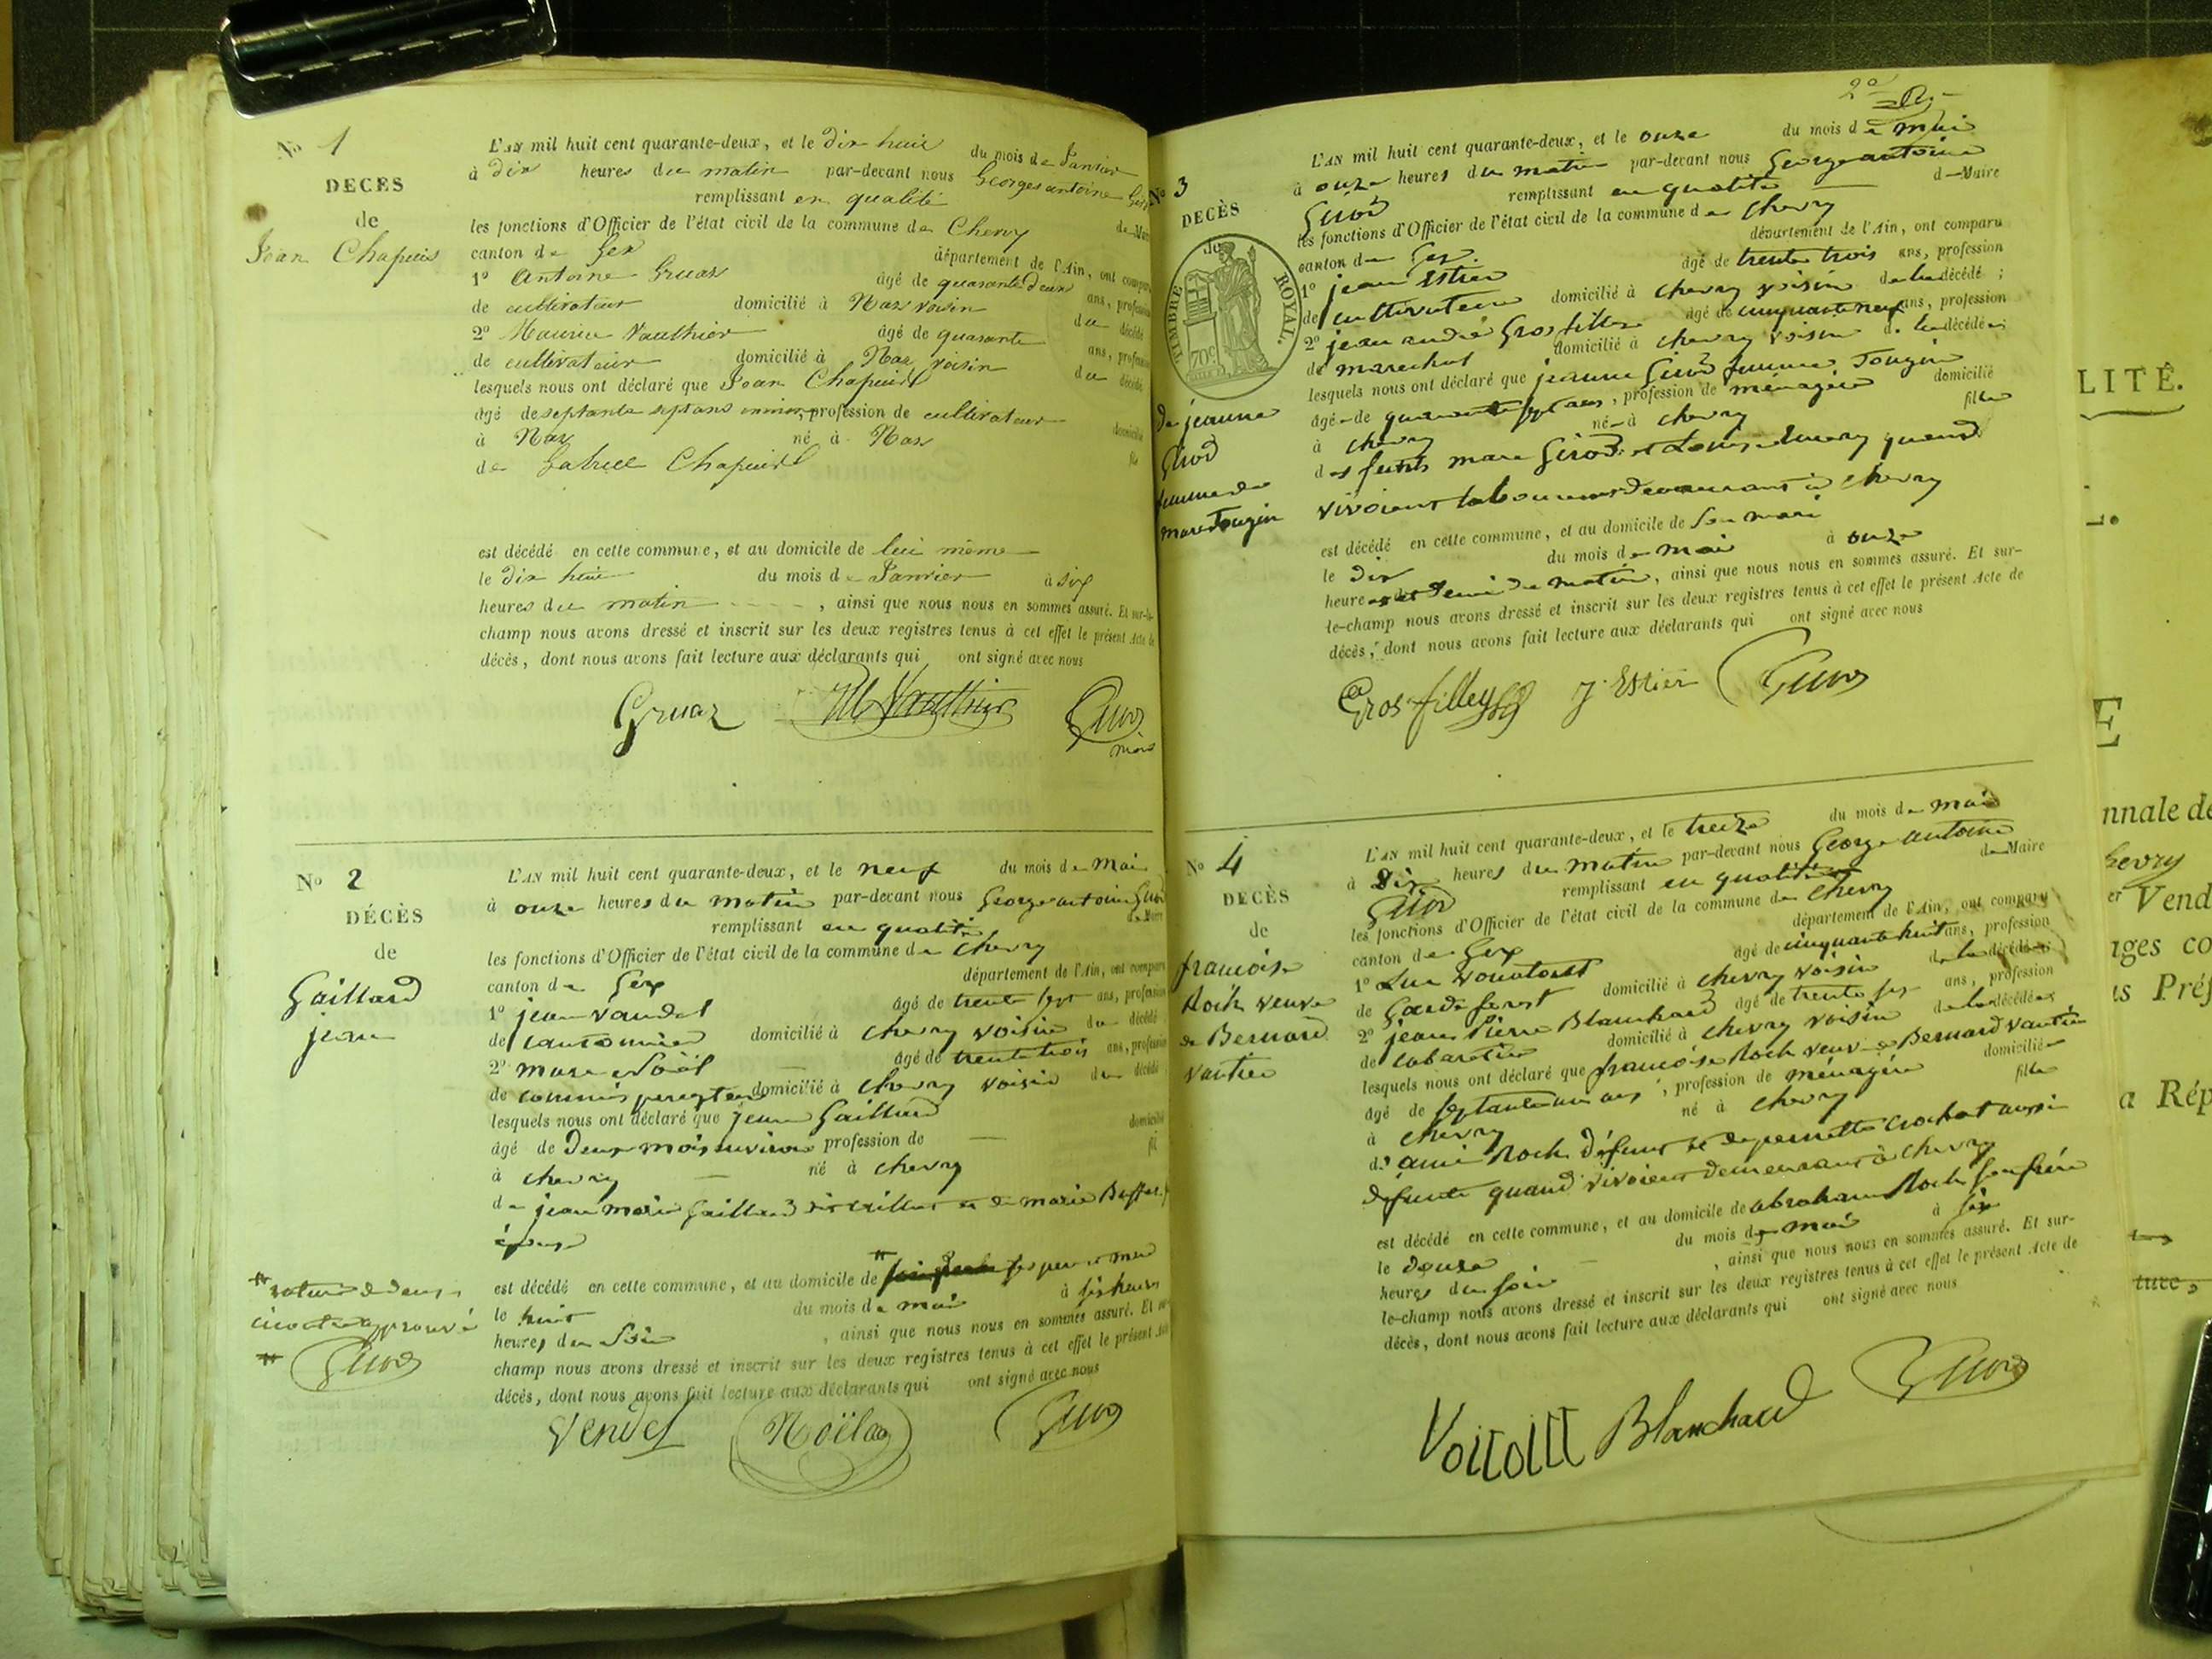 No 1
DECÈS
de
Jean Chapuis
L'AN mil huit cent quarante-deux, et le dix huit du mois de Janvier
à dix heures du matin par-devant nous Georges antoine
remplissant en qualité de Maire
les fonctions d'Officier de l'état civil de la commune de Chevry
canton de Gex département de l'Ain, ont comparu
1o Antoine Gruaz âgé de quarante deux ans, profession
de cultivateur domicilié à Naz voisin du décédé
2o Maurice Vauthier âgé de quarante ans, profession
de cultivateur domicilié à Naz voisin du décédé
lesquels nous ont déclaré que Jean Chapuis
âgé de septante sept ans environ, profession de cultivateur domicilié
à Naz né à Naz fils
de Gabriel Chapuis
est décédé en cette commune, et au domicile de lui même
le dix huit du mois de Janvier à six
heures du matin , ainsi que nous nous en sommes assuré. Et sur-le-
champ nous avons dressé et inscrit sur les deux registres tenus à cet effet le présent Acte de
décès, dont nous avons fait lecture aux déclarants qui ont signé avec nous
Gruaz M Vauthier Girod
maire
No 2
DÉCÈS
de
Gaillard
jean
L'AN mil huit cent quarante-deux, et le neuf du mois de Mai
à onze heures du matin par-devant nous George antoine Girod
remplissant en qualité de Maire
les fonctions d'Officier de l'état civil de la commune de Chevry
canton de Gex département de l'Ain, ont comparu
1o jean Vandel âgé de trente sept ans, profession
de cantonnier domicilié à Chevry voisin du décédé
2o marc Noël âgé de trente trois ans, profession
de commis domicilié à Chevry voisin du décédé
lesquels nous ont déclaré que jean Gaillard
âgé de Deux mois environ profession de — domicilié
à chevry né à chevry fil
de jean marie Gaillard et de marie
épouse
est décédé en cette commune, et au domicile de * ses père et mère
le huit du mois de mai à six heures
heures du Soir , ainsi que nous nous en sommes assuré. Et sur-
champ nous avons dressé et inscrit sur les deux registres tenus à cet effet le présent Acte
décès, dont nous avons fait lecture aux déclarants qui ont signé avec nous
* rature de deux
approuvé
* Girod
Vendel Noël Girod
2e
No 3
DECÈS
de
TIMBRE ROYAL.
70c
de jeanne
Girod
femme de
marc Tougin
L'AN mil huit cent quarante-deux, et le onze du mois de mai
à onze heures du matin par-devant nous George antoine
Girod remplissant en qualité de Maire
les fonctions d'Officier de l'état civil de la commune de Chevry
canton de Gex. département de l'Ain, ont comparu
1o jean Estier âgé de trente trois ans, profession
de cultivateur domicilié à chevry voisin de la décédé ;
2o jean andré Grosfilley âgé de cinquante neuf ans, profession
de marechal domicilié à chevry voisin de la décédée
lesquels nous ont déclaré que jeanne Girod femme Tougin
âgé de quarante sept ans, profession de ménagère domicilié
à chevry né à chevry fille
des funts marc Girod et Louise Emery quand
vivoient laboureurs demeurant à chevry
est décédé en cette commune, et au domicile de Son mari
le dix du mois de mai à onze
heures et demi du matin, ainsi que nous nous en sommes assuré. Et sur-
le-champ nous avons dressé et inscrit sur les deux registres tenus à cet effet le présent Acte de
décès, dont nous avons fait lecture aux déclarants qui ont signé avec nous
Grosfilley J. Estier Girod
No 4
DECÈS
de
francoise
Roch veuve
de Bernard
Vautier
L'AN mil huit cent quarante-deux, et le treize du mois de mai
à Dix heures du matin par-devant nous George antoine
Girod remplissant en qualité de Maire
les fonctions d'Officier de l'état civil de la commune de Chevry
canton de Gex département de l'Ain, ont comparu
1o Luc âgé de cinquante huit ans, profession
de Garde forest domicilié à chevry voisin de la décédée
2o jean Pierre Blanchard âgé de trente six ans, profession
de cabaretier domicilié à chevry voisin de la décédée
lesquels nous ont déclaré que françoise Roch veuve de Bernard Vautier
âgé de septante un ans, profession de ménagère domiciliée
à Chevry né à chevry fille
de ami Roch défunt et de pernette Crochat aussi
défunte quand vivoient demeurant à Chevry
est décédé en cette commune, et au domicile de abraham Roch son frère
le douze du mois de mai à six
heures du soir , ainsi que nous nous en sommes assuré. Et sur-
le-champ nous avons dressé et inscrit sur les deux registres tenus à cet effet le présent Acte de
décès, dont nous avons fait lecture aux déclarants qui ont signé avec nous
Blanchard Girod
LITÉ.
E
nnale de
hevry
er Vend
ages co
ts Préf
a Rép
ture,